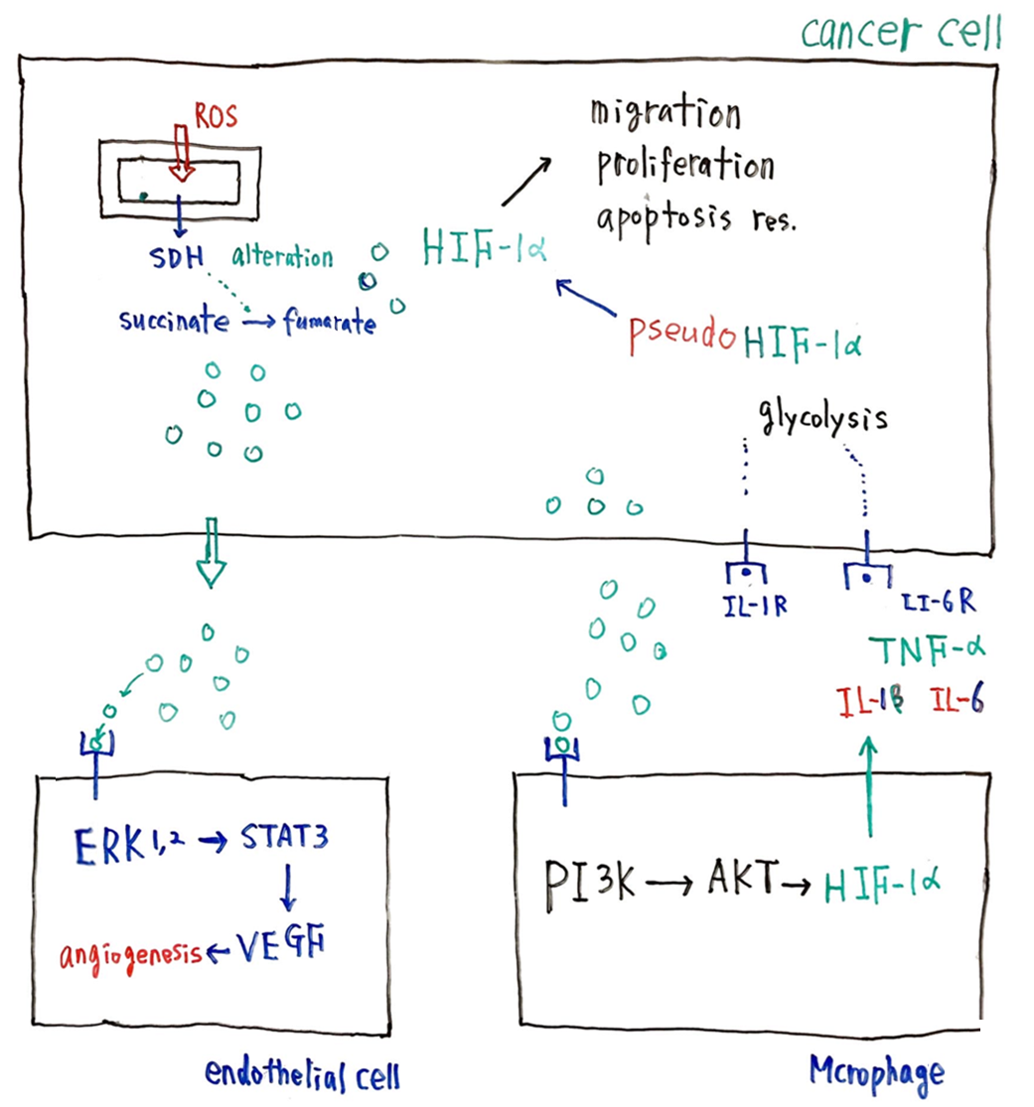 cancer cell
ROS
migration
proliferation
apoptosis res.
SDH alteration
HIF-1α
succinate → fumarate
pseudo HIF-1α
glycolysis
IL-1R
LI-6R
TNF-α
IL-1β IL-6
ERK1,2 → STAT3
angiogenesis ← VEGF
endothelial cell
PI3K → AKT → HIF-1α
Mcrophage